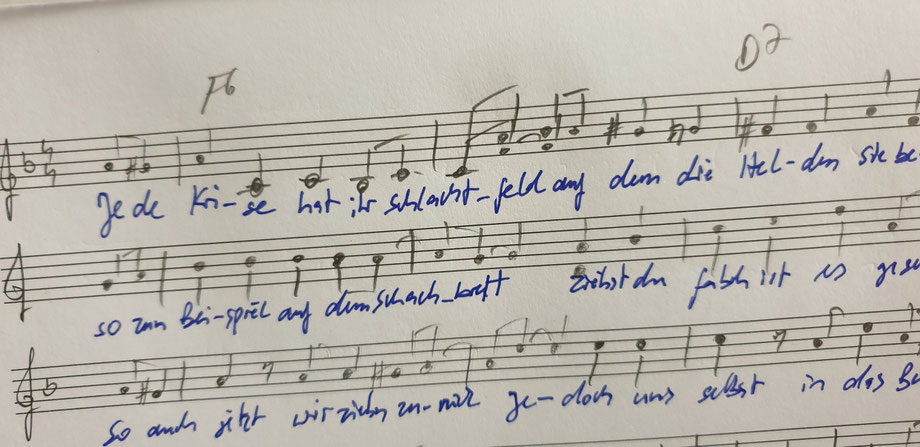 F6 D7
Je de Kri-se hat ihr schlacht-feld auf dem die Hel-den sie be
so zum Bei-spiel auf dem schach-brett ziehst du falsch ist es
so auch jetzt wir ziehn zu-rück je-doch uns selbst in das